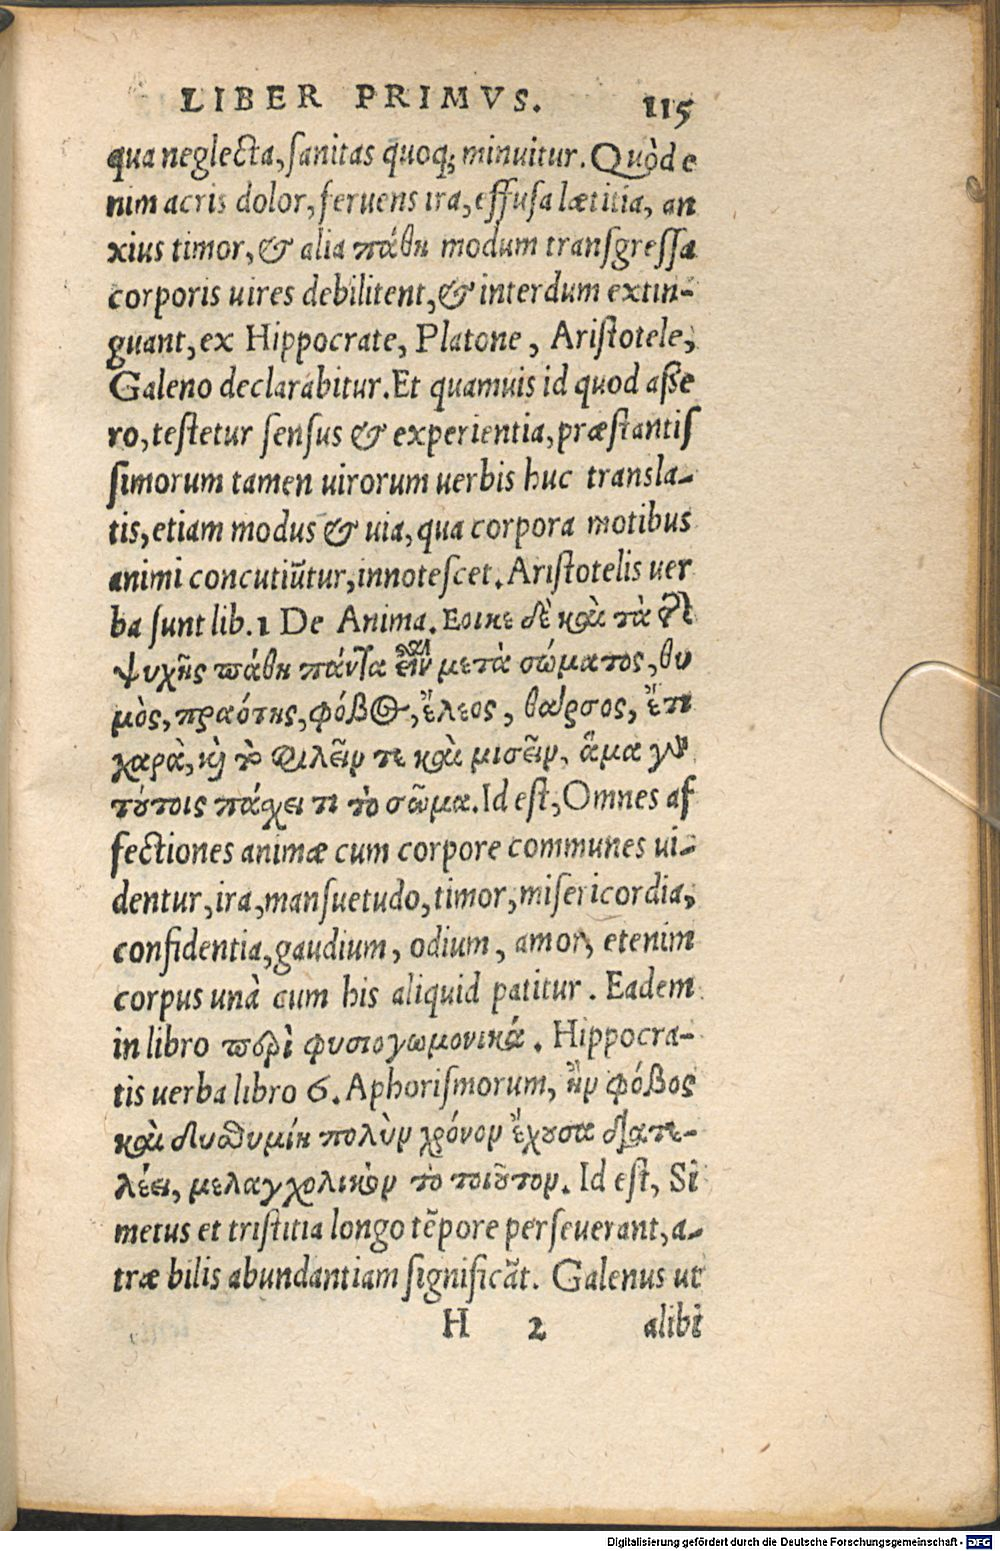 LIBER PRIMVS. 115
qua neglecta, sanitas quoq; minuitur. Quòd e
nim acris dolor, feruens ira, effusa lætitia, an
xius timor, & alia πάθη modum transgressa
corporis uires debilitent, & interdum extin-
guant, ex Hippocrate, Platone, Aristotele,
Galeno declarabitur. Et quamuis id quod asse
ro, testetur sensus & experientia, præstantis
simorum tamen uirorum uerbis huc transla-
tis, etiam modus & uia, qua corpora motibus
animi concutiūtur, innotescet. Aristotelis uer
ba sunt lib. 1 De Anima. Εοικε δὲ καὶ τὰ τῆς
ψυχῆς πάθη πάντα εἶναι μετὰ σώματος, θυ
μὸς, πραότης, φόβος, ἔλεος, θάρσος, ἔτι
χαρὰ, καὶ τὸ φιλεῖν τε καὶ μισεῖν, ἅμα γὰρ
τούτοις πάχει τι τὸ σῶμα. Id est, Omnes af
fectiones animæ cum corpore communes ui-
dentur, ira, mansuetudo, timor, misericordia,
confidentia, gaudium, odium, amor, etenim
corpus unà cum his aliquid patitur. Eadem
in libro περὶ φυσιογωμονικά. Hippocra-
tis uerba libro 6. Aphorismorum, ἢν φόβος
καὶ δυσθυμίη πολὺν χρόνον ἔχουσα διατε-
λέει, μελαγχολικὸν τὸ τοιοῦτον. Id est, Si
metus et tristitia longo tēpore perseuerant, a-
træ bilis abundantiam significāt. Galenus ut
H 2 alibi
Digitalisierung gefördert durch die Deutsche Forschungsgemeinschaft - DFG